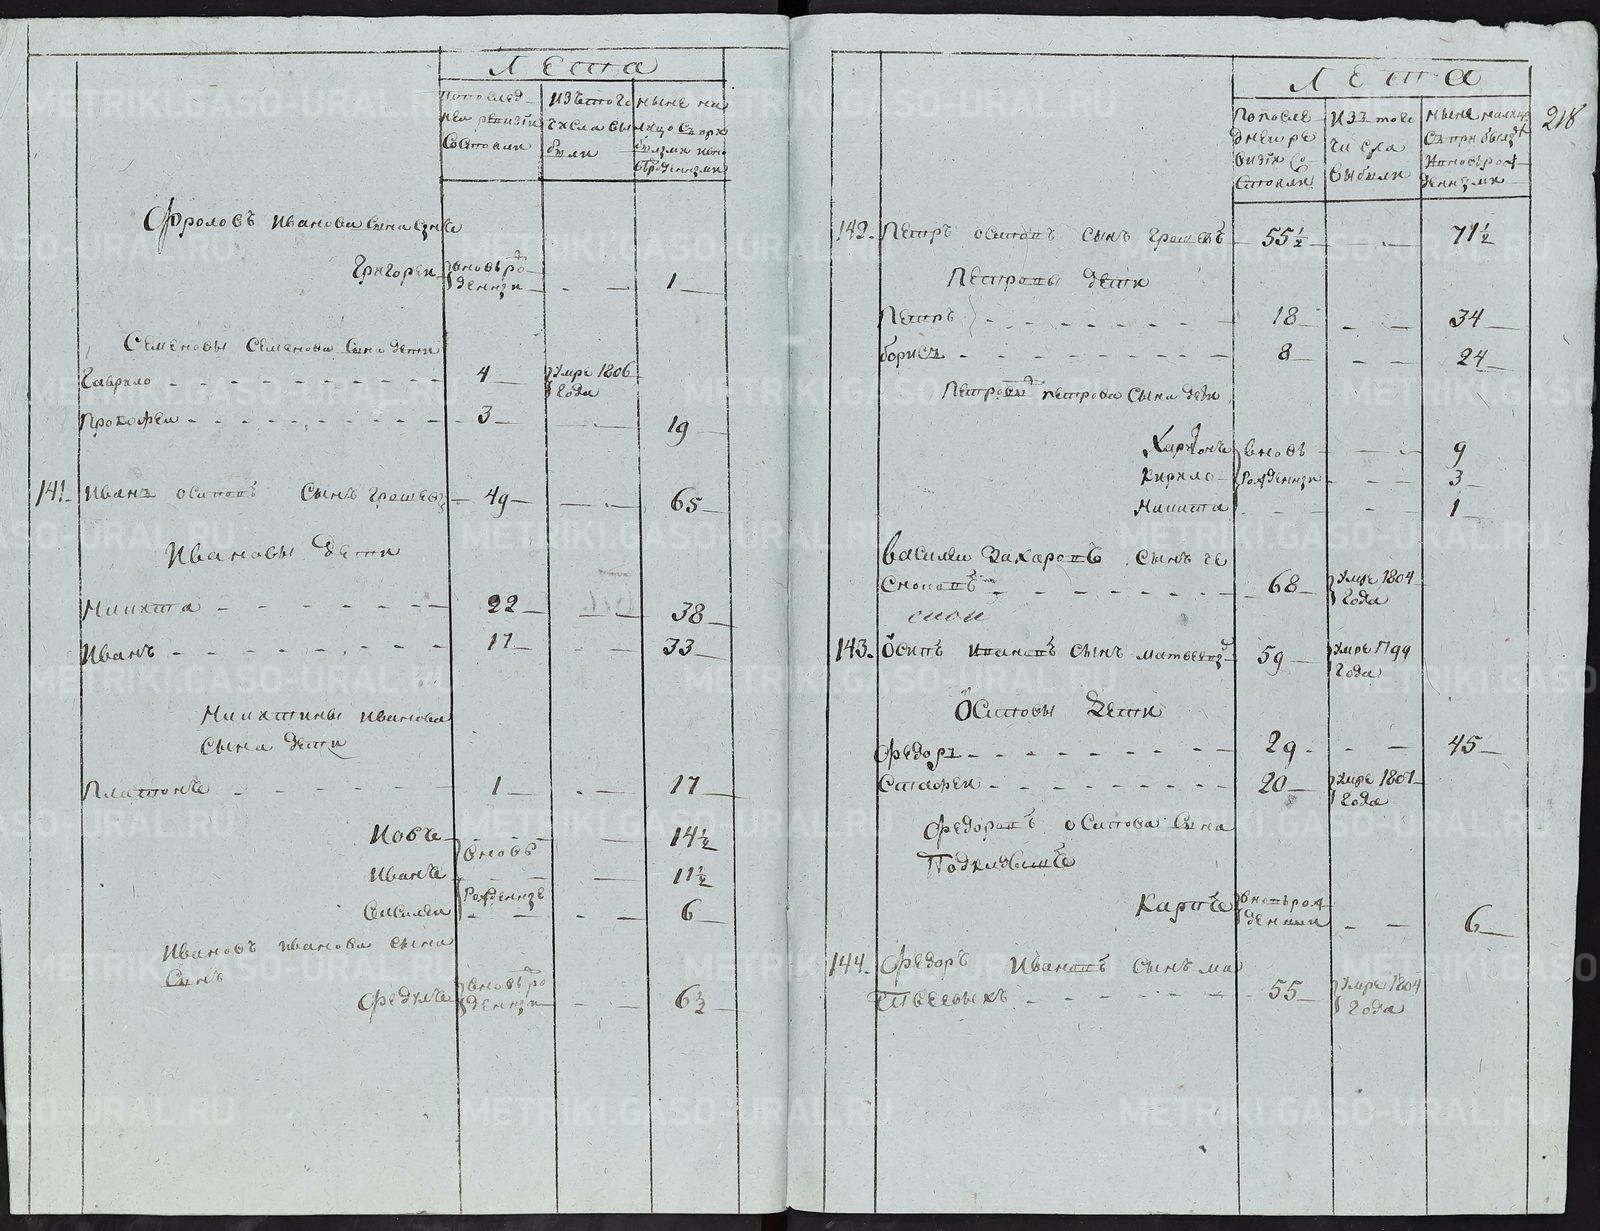 Лета
Попослед-
ней ревизїи
Состояли
Изътого
числа вы
были
ныне на
лицо съпри
былыми ино
ворожденными
Фроловъ Иванова Сына Сынъ
Григореи вновьро-
жденны - - 1
Семеновы Семенова Сына дети
Гаврило - - - 4 Умре 1806
Года
Прокофеи - - - 3 - - 19
141. Иванъ осиповъ Сынъ Грошевъ 49 - - 65
Ивановы дети
Микита - - - 22 - - 38
Иванъ - - - 17 - - 33
Микитины Иванова
Сына дети
Платонъ - - - 1 - - 17
Иовъ вновь - 14½
Иванъ - 11½
Василеи Рожденны - 6
Ивановъ Иванова Сына
Сынъ
Федулъ вновьро
жденны - - 6½
Лета
Попосле
днеи ре
визїи Со
стояли
Изъ того
числа
выбыли
ныне налицо
Съприбылы
Иноворож
денными
218
142. Петръ осиповъ Сынъ Грошевъ 55½ - - 71½
Петровы дети
Петръ - - - 18 - - 34
борисъ - - - 8 - - 24
Петровы петрова Сына дети
Харитонъ вновь - - 9
Кирило Рожденны - - 3
Микита - - 1
Василеи Захаровъ Сынъ че
Сноковъ - - - 68 Умре 1804
Года
143. Осипъ Ивановъ Сынъ матвеевъ 59 Умре 1799
Года
Осиповы Дети
Федоръ - - - 29 - - 45
Стафеи - - - 20 Умре 1801
Года
Федоровъ осипова Сына
Подкидышъ
Карпъ вновьрож
денныи - - 6
144. Федоръ Ивановъ Сынъ ма
твеевыхъ - - - 55 Умре 1804
Года
METRIKI.GASO-URAL.RU